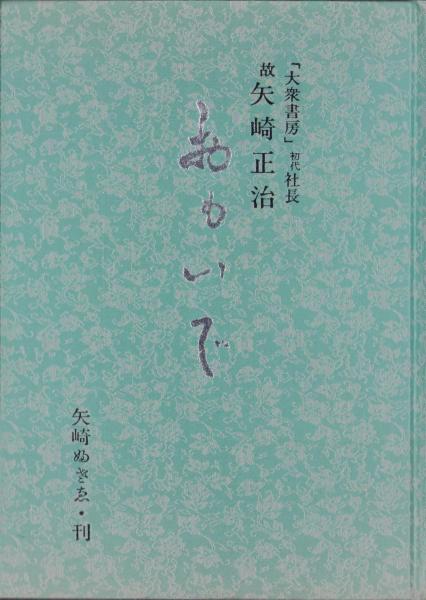 「大衆書房」初代社長
故 矢崎正治
おもいで
矢崎ぬきゑ・刊